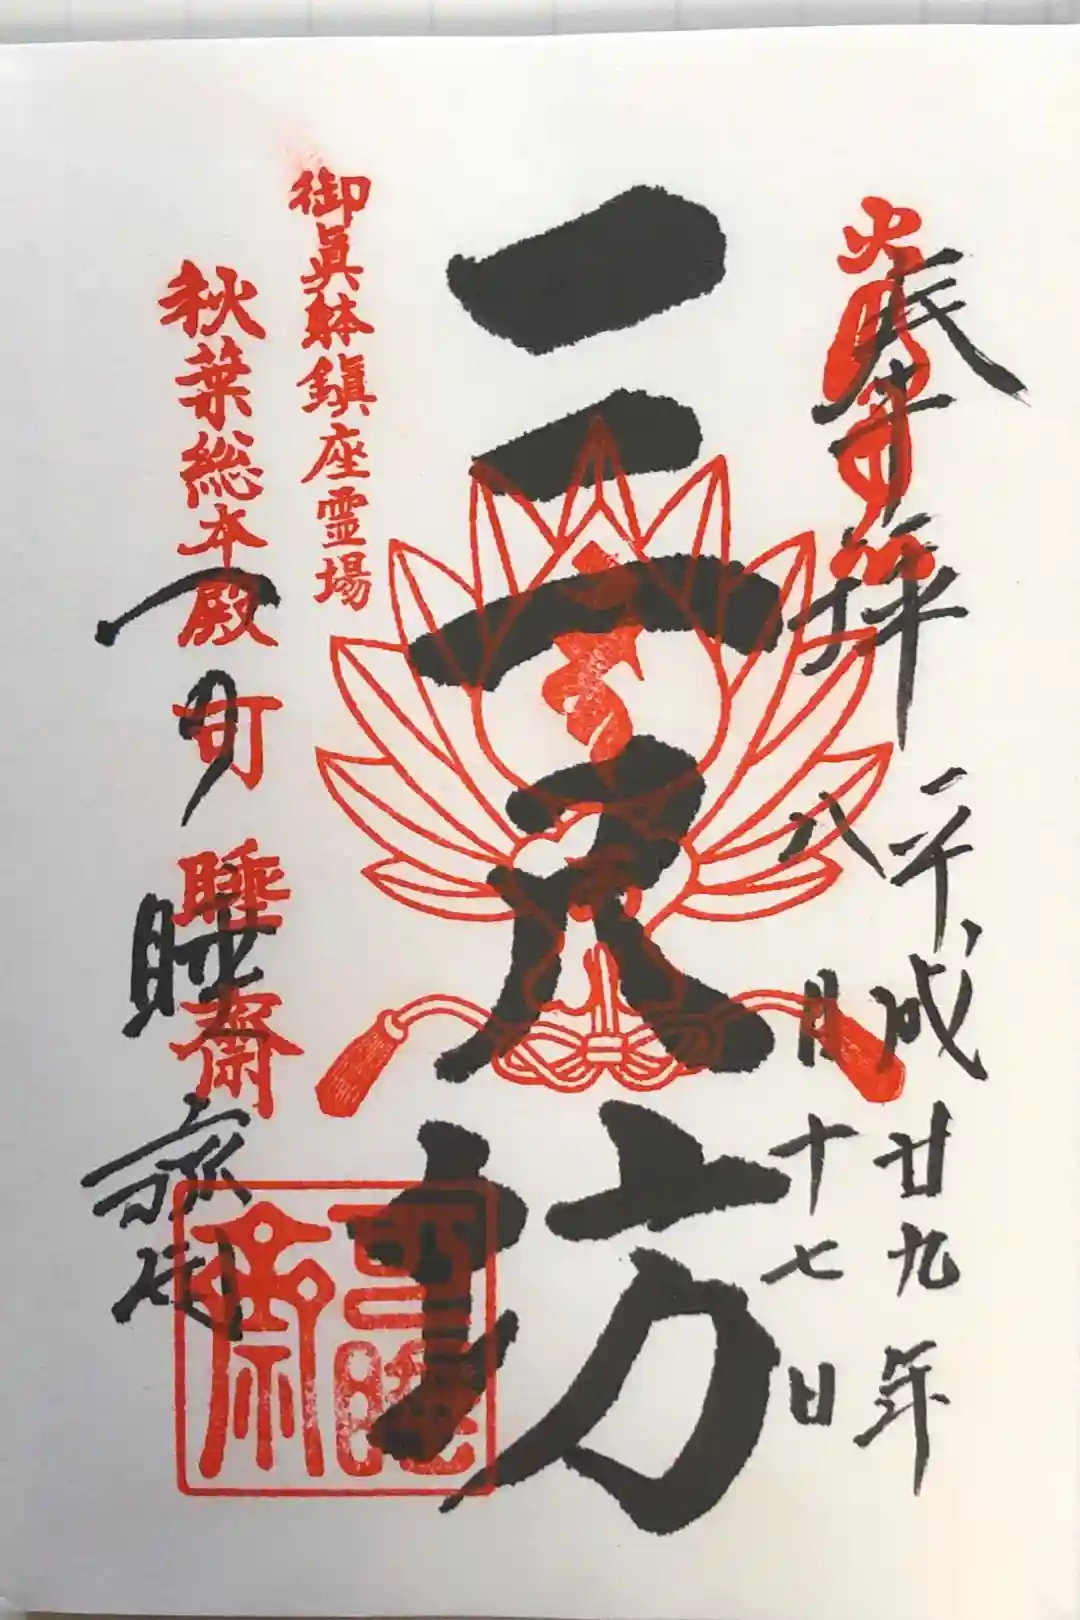 奉拝
平成廿九年
八月十七日
三尺坊
御眞躰鎮座霊場
秋葉総本殿可睡齋
可睡齋
可睡齋